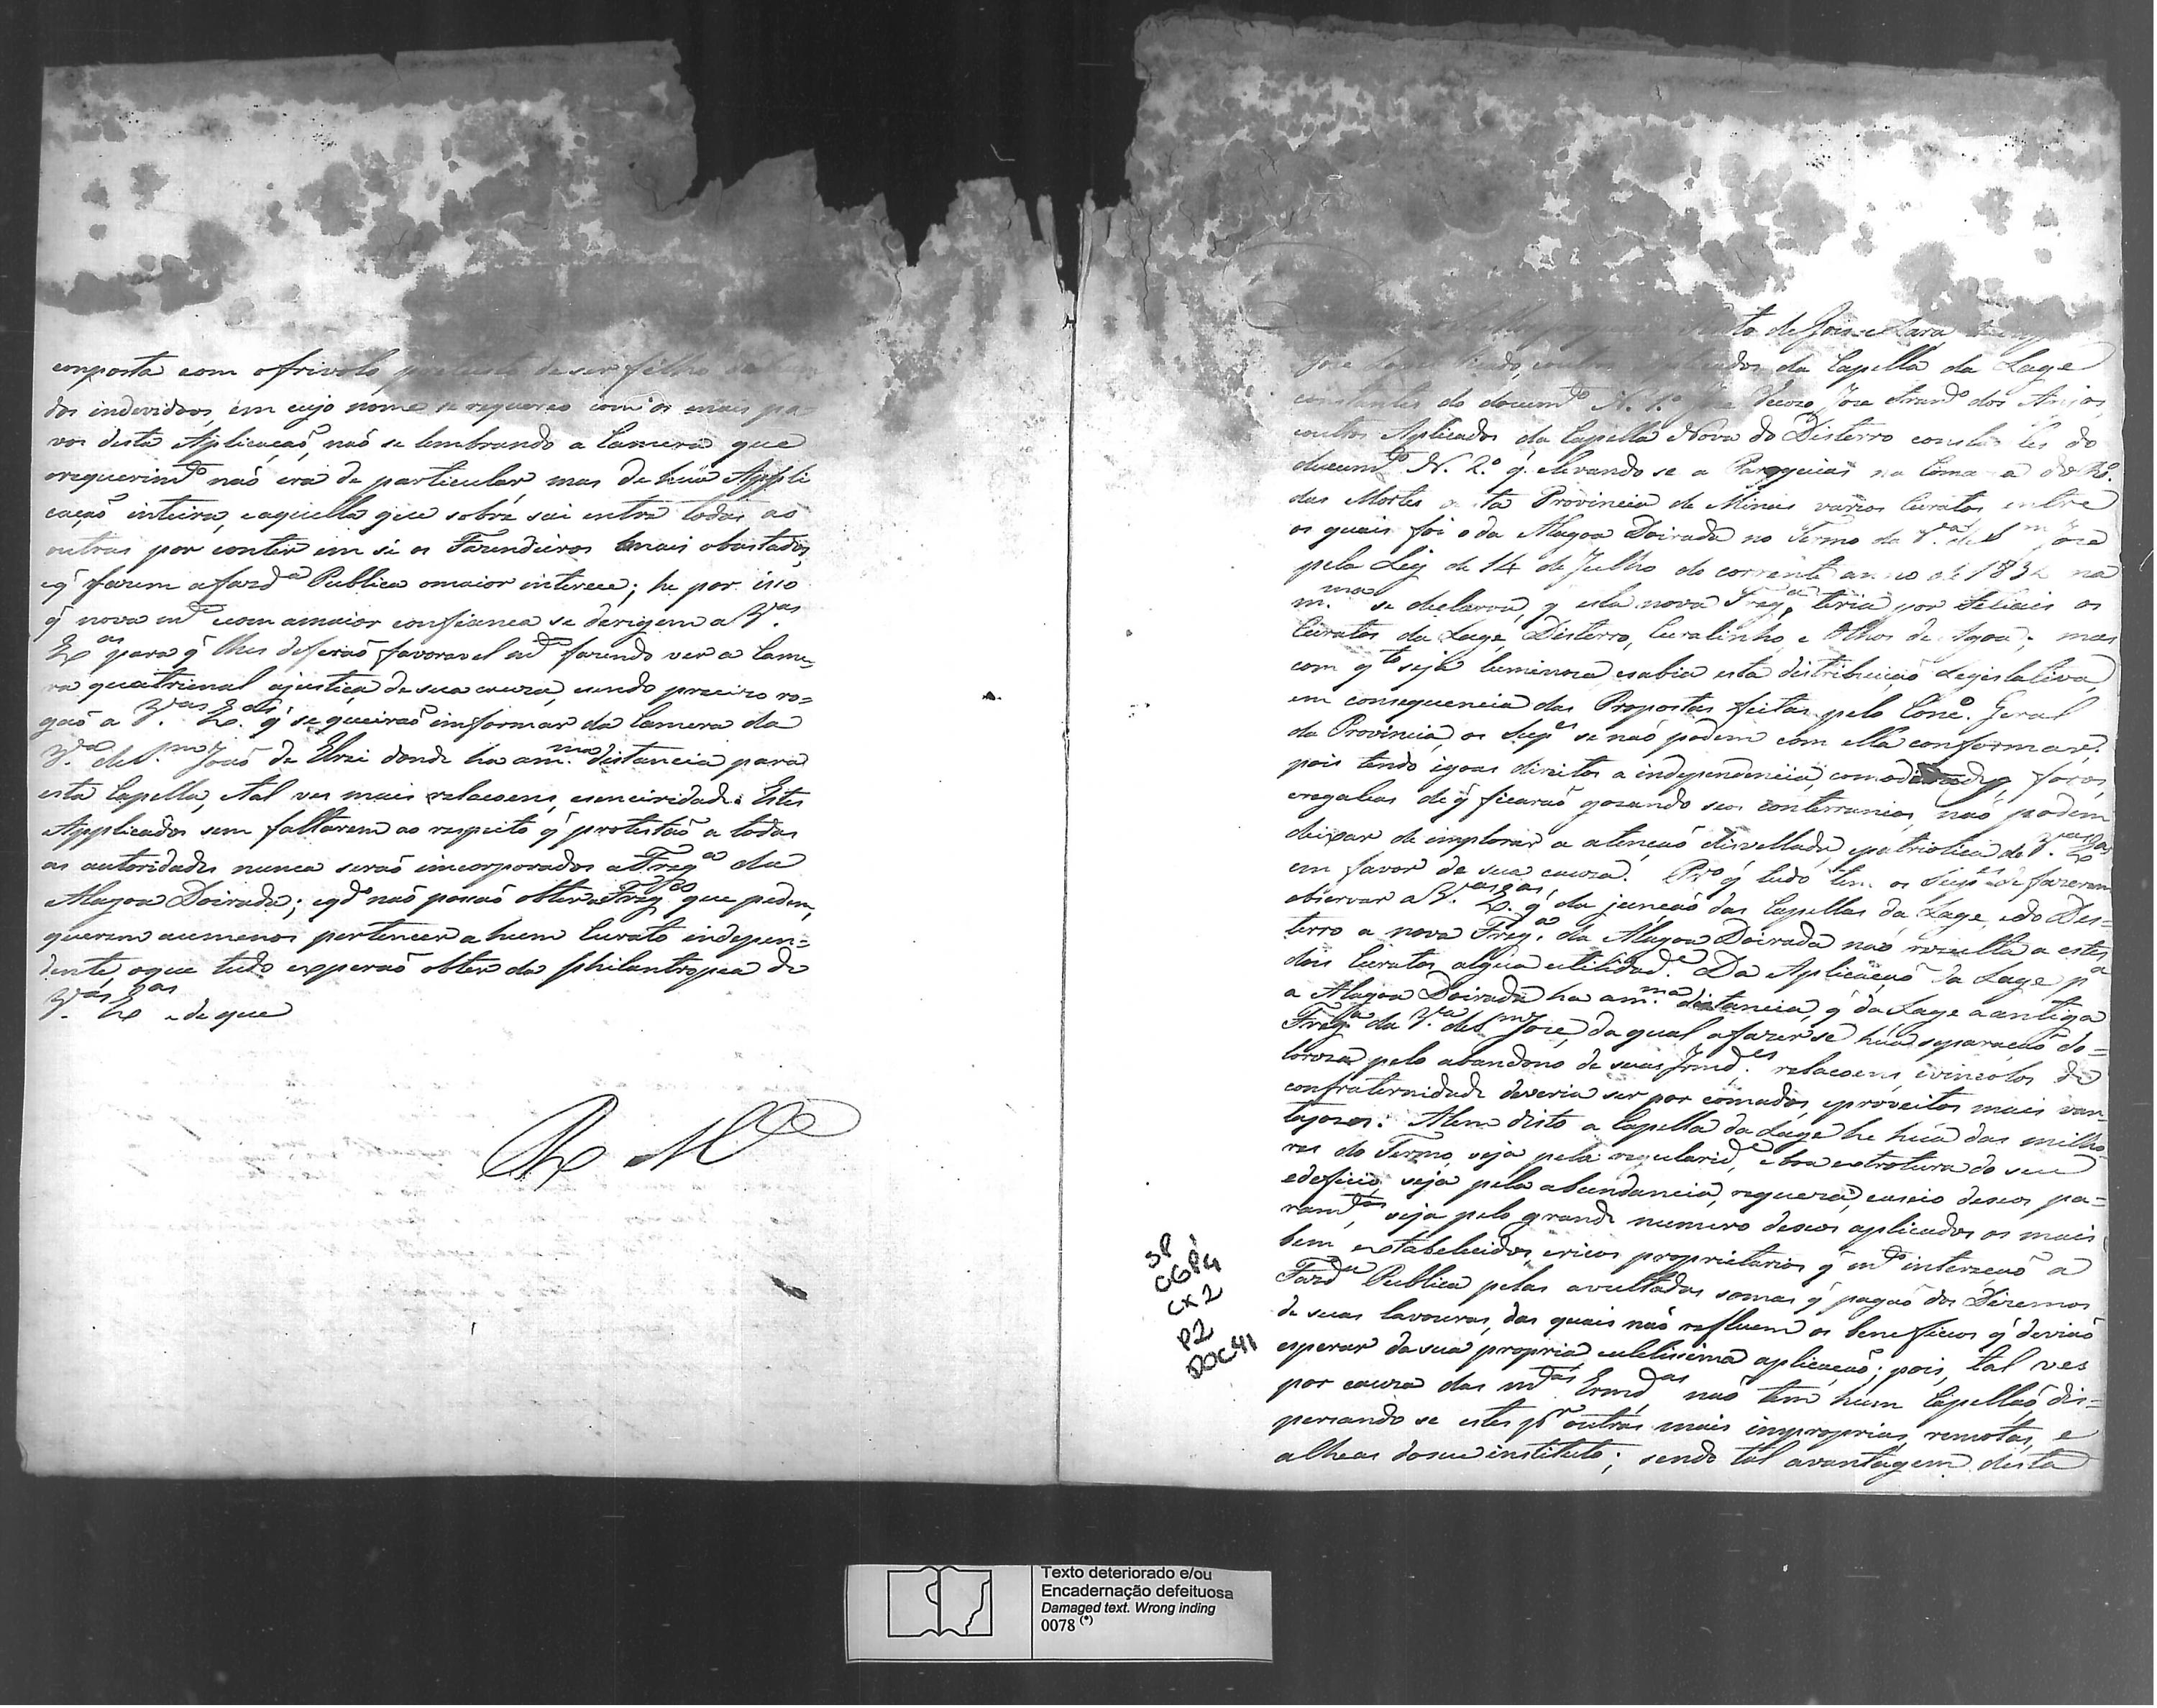 comporta com o frivolo pretexto de ser filho
dos individuos, em cujo nome se requereo com os mais po
vos desta Aplicaçaõ, naõ se lembrando a Camera que
o requerimd.º naõ era de particular, mas de hũa Appli
caçaõ inteira, e aquella que sobre sai entre todas as
outras por conter em si os Fazendeiros mais abastados,
e q̃ fazem a fazd.ª Publica o maior interece; he por isso
q̃ nova m.te com a maior confiança se derigem a V.as
Ex.as para q̃ lhes deferaõ favoravel m.te fazendo ver a Came-
ra quatrienal a justiça de sua cauza, sendo precizo ro-
gaõ a V.as Ex.as q̃ se queiraõ informar da Camera da
V.ª de S.m Joaõ de Elrei donde ha a m.ma distancia para
esta Capella, e tal ves mais relacoens, e sinciridade. Estes
Applicados sem faltarem ao respeito q̃ protestaõ a todas
as autoridades nunca seraõ incorporados a Freg.ª da
Alagoa Doirada; e q.do naõ possaõ obter a Freg.ª que pedem,
querem aomenos pertencer a hum Curato indepen-
dente, o que tudo expperaõ obter da philantropea de
V.as Ex.as e de que
R M.ce
de Gois e Lara
Jose outros Aplicados da Capella da Lage
constantes do docum.to N. 1.º Jose Jose Fran.co dos Anjos,
e outros Aplicados da Capella Nova do Disterro constantes do
docum.to N. 2.º q̃ elevando se a Paroquias na Comarca do R.º
das Mortes desta Provincia de Minas varios Curatos entre
os quais foi o da Alagoa Doirada no Termo da V.ª de S.m Jose
pela Ley de 14 de Julho do corrente anno de 1832 na
m.ma se declarou, q̃ esta nova Freg.ª teria por filiais os
Curatos da Lage, Disterro, Curalinho, e Olhos de Agoa; mas
com q.to seja luminosa e sabia esta distribuiçaõ Legislativa,
em consequencia das Propostas feitas pelo Cons.º Geral
da Provincia, os Sup.es se naõ podem com ella conformar:
pois tendo igoas direitos a independencia, comodidades, foros,
e regalias de q̃ ficaraõ gozando seos conterraneos, naõ podem
deixar de implorar a atençaõ disvellada, e patriotica de V.as Ex.as
em favor de sua cauza. Pr.º q̃ tudo tem os Sup.es de fazerem
observar a V.as Ex.as q̃ da junçaõ das Capellas da Lage, e do Des-
terro a nova Freg.ª da Alagoa Doirada naõ rezulta a estes
dois Curatos algũa utilidad.e Da Aplicaçaõ da Lage p.ª
a Alagoa Doirada ha a m.ma distancia, q̃ da Lage a antiga
Freg.ª da V.ª de S.m Jose, da qual a fazer se hũa separaçaõ do-
loroza pelo abandono de suas Irmd.es, relacoens, e vinculos de
confraternidade deveria ser por comodos, e proveitos mais van-
tajozos. Alem disto a Capella da Lage he hũa das milho-
res do Termo, seja pela regularid.e, e boa estrotura do seu
edeficio, seja pela abundancia, riqueza, e aseio de seos pa-
ram.tos, seja pelo grande numero de seos aplicados os mais
bem estabelecidos, e ricos proprietarios q̃ m.to interessaõ a
Fazd.ª Publica pelas avultadas somas q̃ pagaõ dos Dizemos
de suas lavouras, das quais naõ refluem os beneficios q̃ deviaõ
esperar da sua propria, e utelissima aplicaçaõ; pois, tal ves
por cauza das m.mas Ermd.as naõ tem hum Capellaõ, dis-
persando se estes p.r outras mais improprias, remotas, e
alheas do seu instituto; sendo tal a vantagem desta
SP
CGP4
CX2
P2
DOC41
Texto deteriorado e/ou
Encadernação defeituosa
Damaged text. Wrong inding
0078 (*)